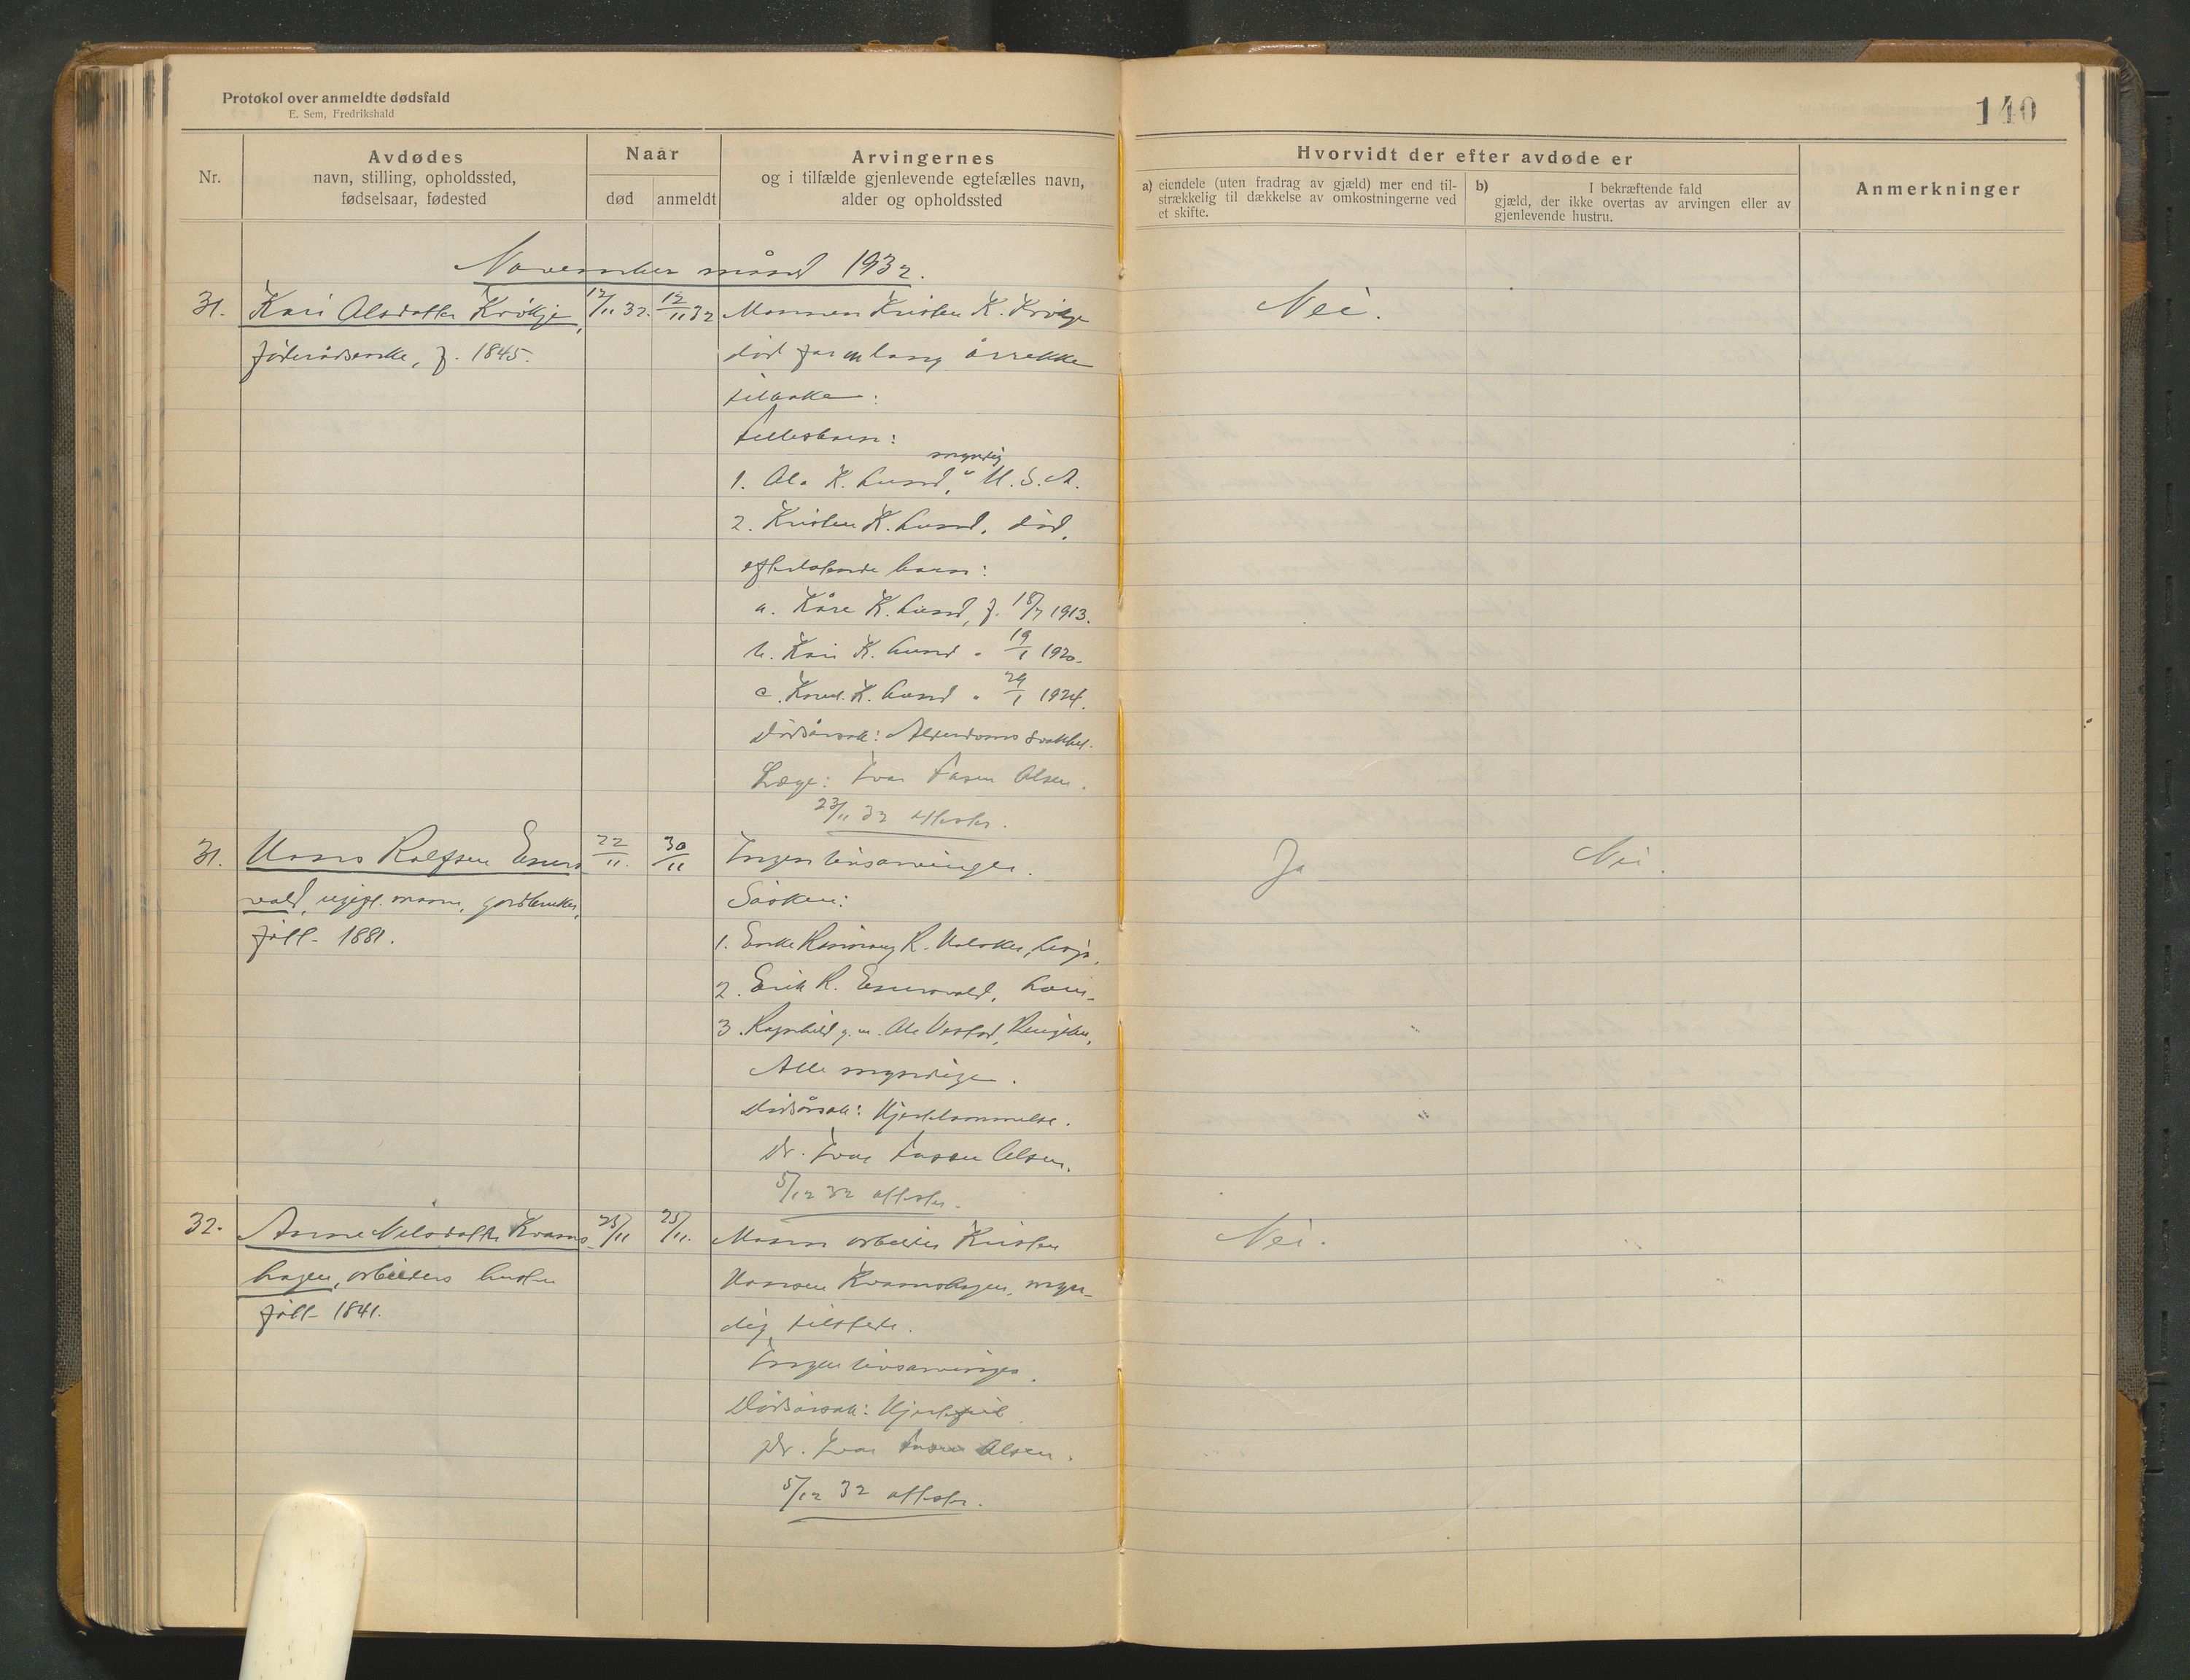 Protokol over anmeldte dødsfald
E. Sem, Fredrikshald
140
Nr.
Avdødes
navn, stilling, opholdssted,
fødselsaar, fødested
Naar
død
anmeldt
Arvingernes
og i tilfælde gjenlevende egtefælles navn,
alder og opholdssted
Hvorvidt der efter avdøde er
a) eiendele (uten fradrag av gjæld) mer end til-
strækkelig til dækkelse av omkostningerne ved
et skifte.
b) I bekræftende fald
gjæld, der ikke overtas av arvingen eller av
gjenlevende hustru.
Anmerkninger
November måned 1932.
31. Kari Olsdatter Krökje, 12/11 32. 12/11 32 Mannen Kristen K. Krökje Nei.
föderådsenke, f. 1845.
död for en lang årrekke
tilbake.
Fellesbarn:
myndig
1. Ola K. Lund, U.S.A.
2. Kristen K. Lund, död,
efterlatende barn:
a. Kåre K. Lund, f. 18/7 1913.
b. Kari K. Lund " 19/1 1920.
c. K. Lund " 29/1 1924.
Dödsårsak: Alderdomssvakhet.
Læge: Ivar Aasen Olsen.
23/11 32 attester.
31. Hans Rolfsen Eners- 22/11. 30/11 Ingen livsarvinger. Ja Nei.
vold, ugift mann, gårdbruker,
född 1881.
Sösken:
1. Enke R. Lesja.
2. Erik R. Enersvold, Lom.
3. Ragnhild g.m. Ole Ringebu.
Alle myndige.
Dödsårsak: Hjertelammelse.
Dr. Ivar Aasen Olsen.
5/12 32 attester.
32. Anne Nilsdatter Kvams- 25/11 25/11. Mann arbeider Kristen Nei.
hagen, arbeiders hustru
född 1841.
Hansen Kvamshagen, myn-
dig tilstede.
Ingen livsarvinger.
Dödsårsak: Hjertefeil
Dr. Ivar Aasen Olsen.
5/12 32 attester.